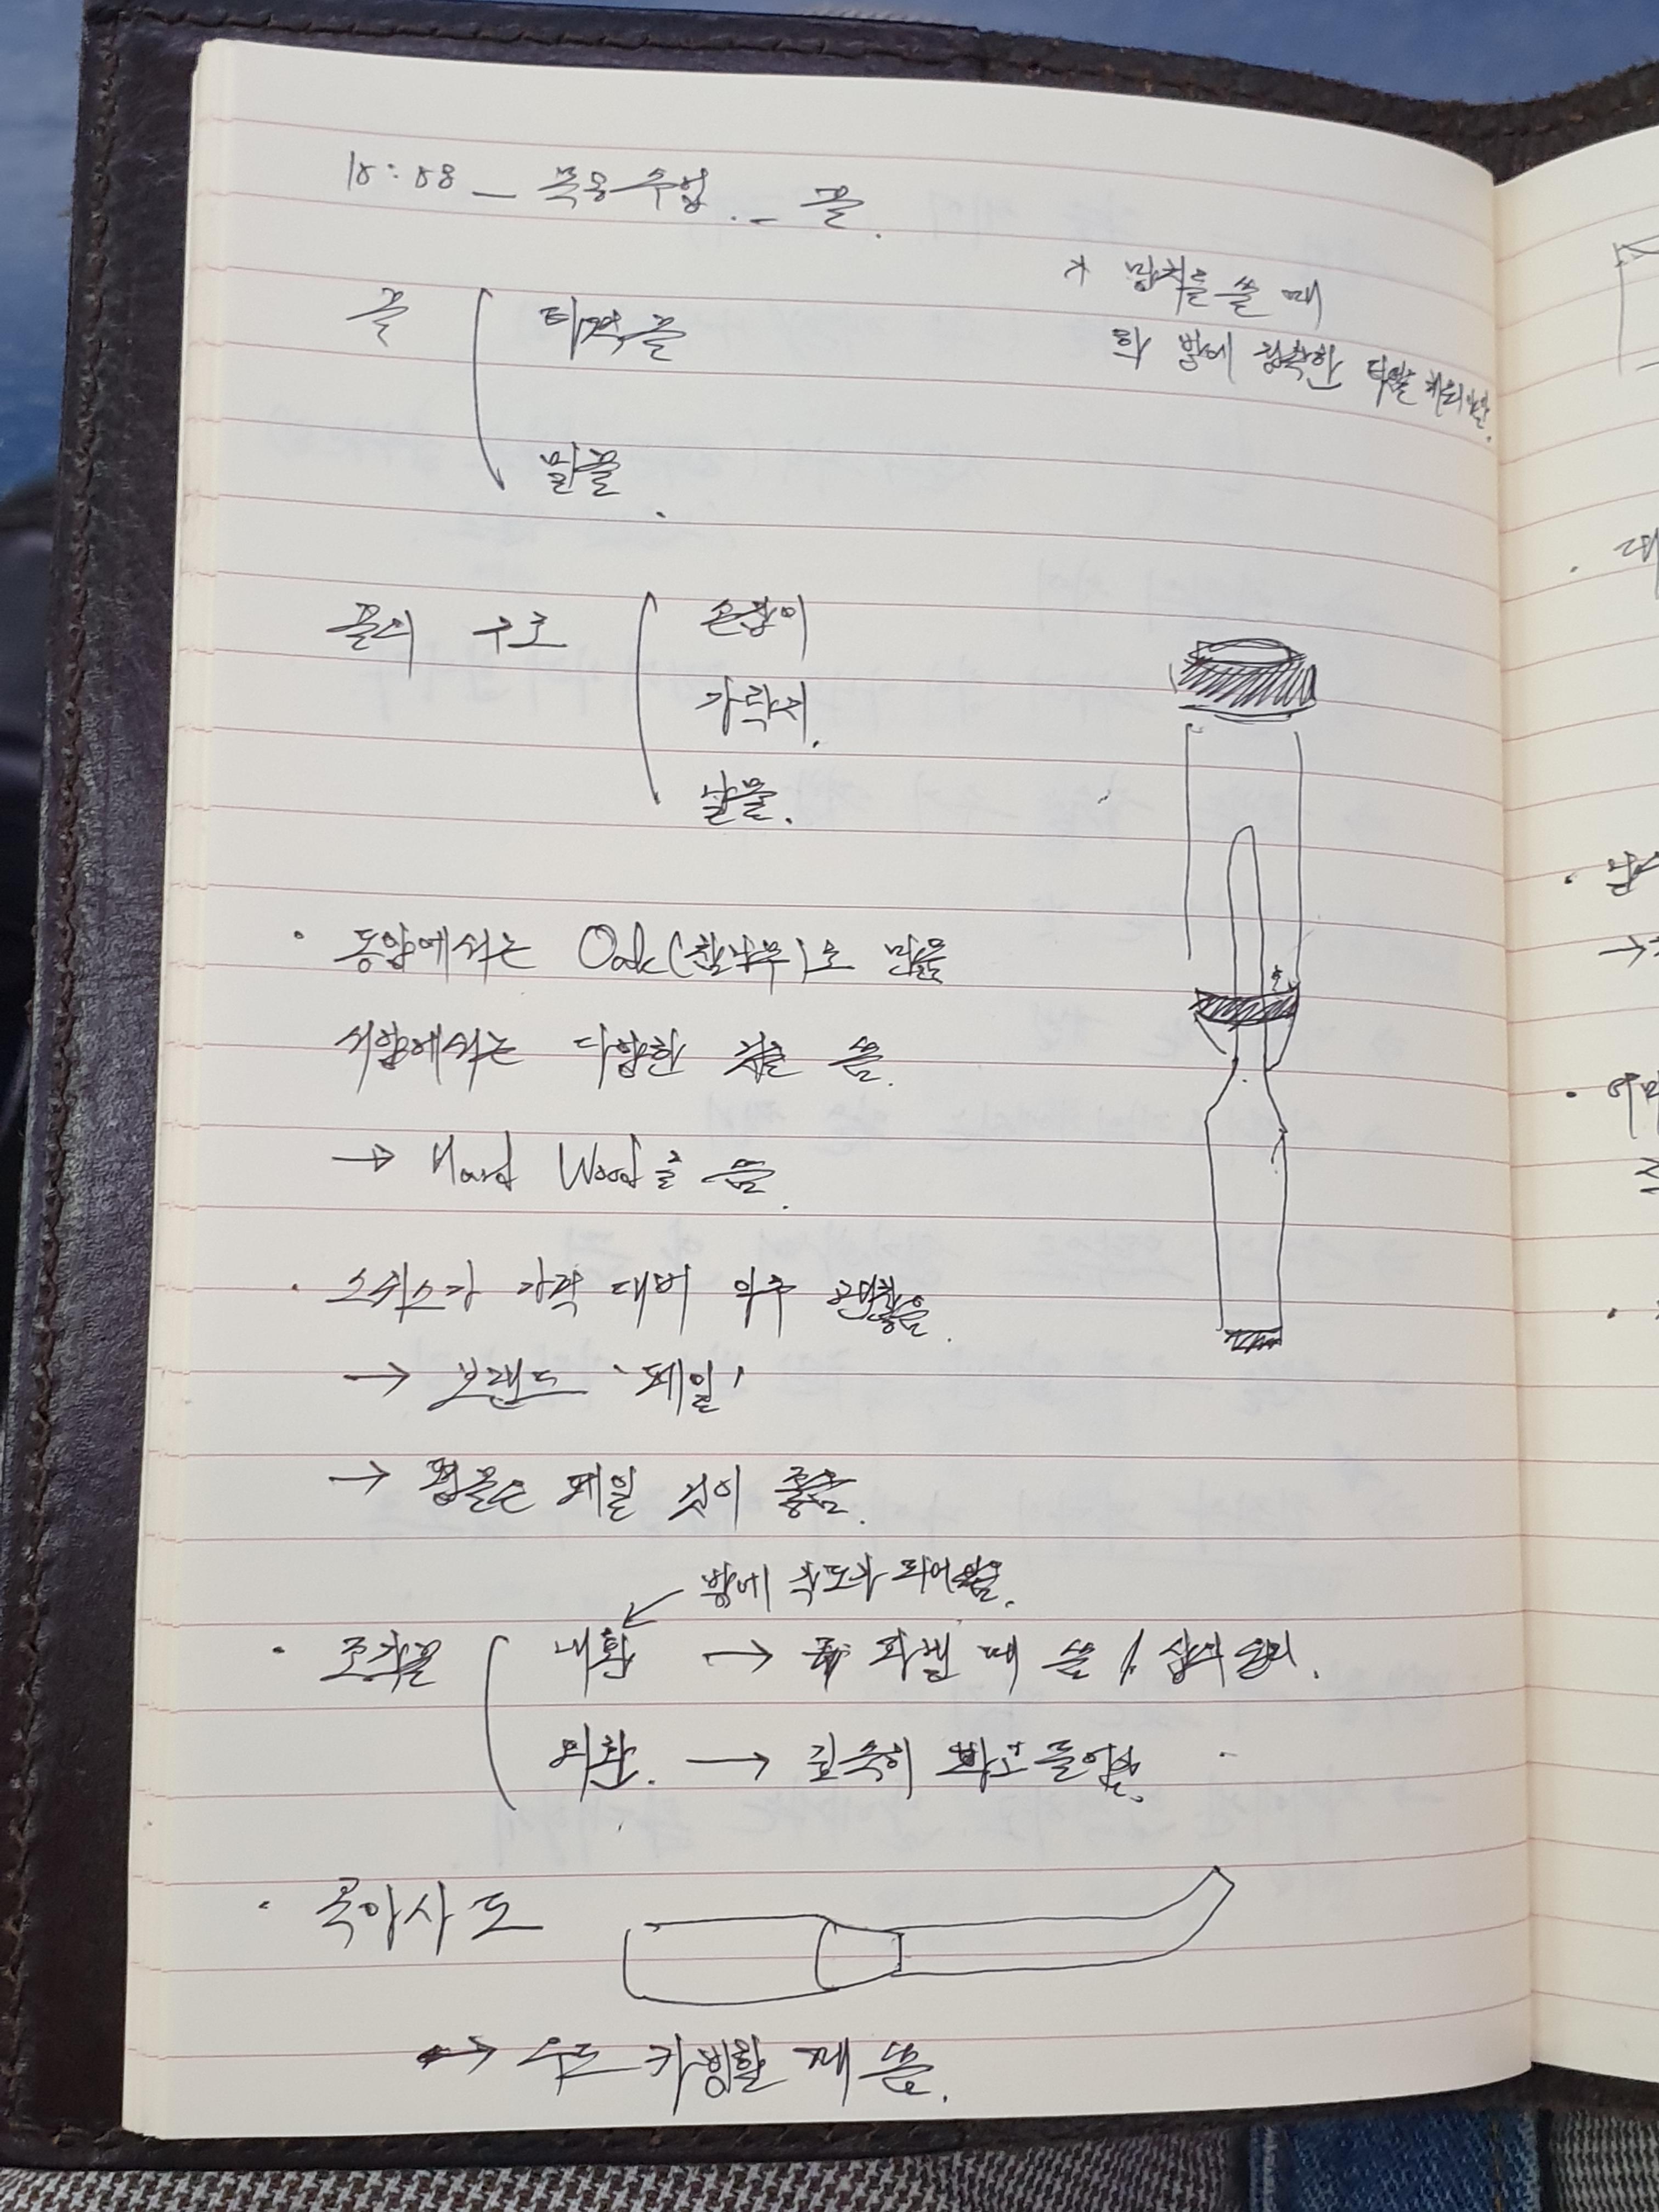 18:58 - 목공수업. - 끌.
* 망치를 쓸 때
한 방에 정확한 타격 해야함.
끌
타격끌
밀끌.
끌의 구조
손잡이
가락지.
날물.
· 동양에서는 Oak(참나무)로 만듦
서양에서는 다양한 것을 씀.
→ Hard Wood를 씀.
· 스위스가 가격 대비 아주 괜찮음.
→ 브랜드 '페일'
→ 평끌은 페일 것이 좋음.
방에 각도가 되어있음.
· 조각끌
내환 → 파낼 때 씀 /
외환. → 깊숙히 파고 들어감.
· 곡아사도
→ 우드 카빙할 때 씀.